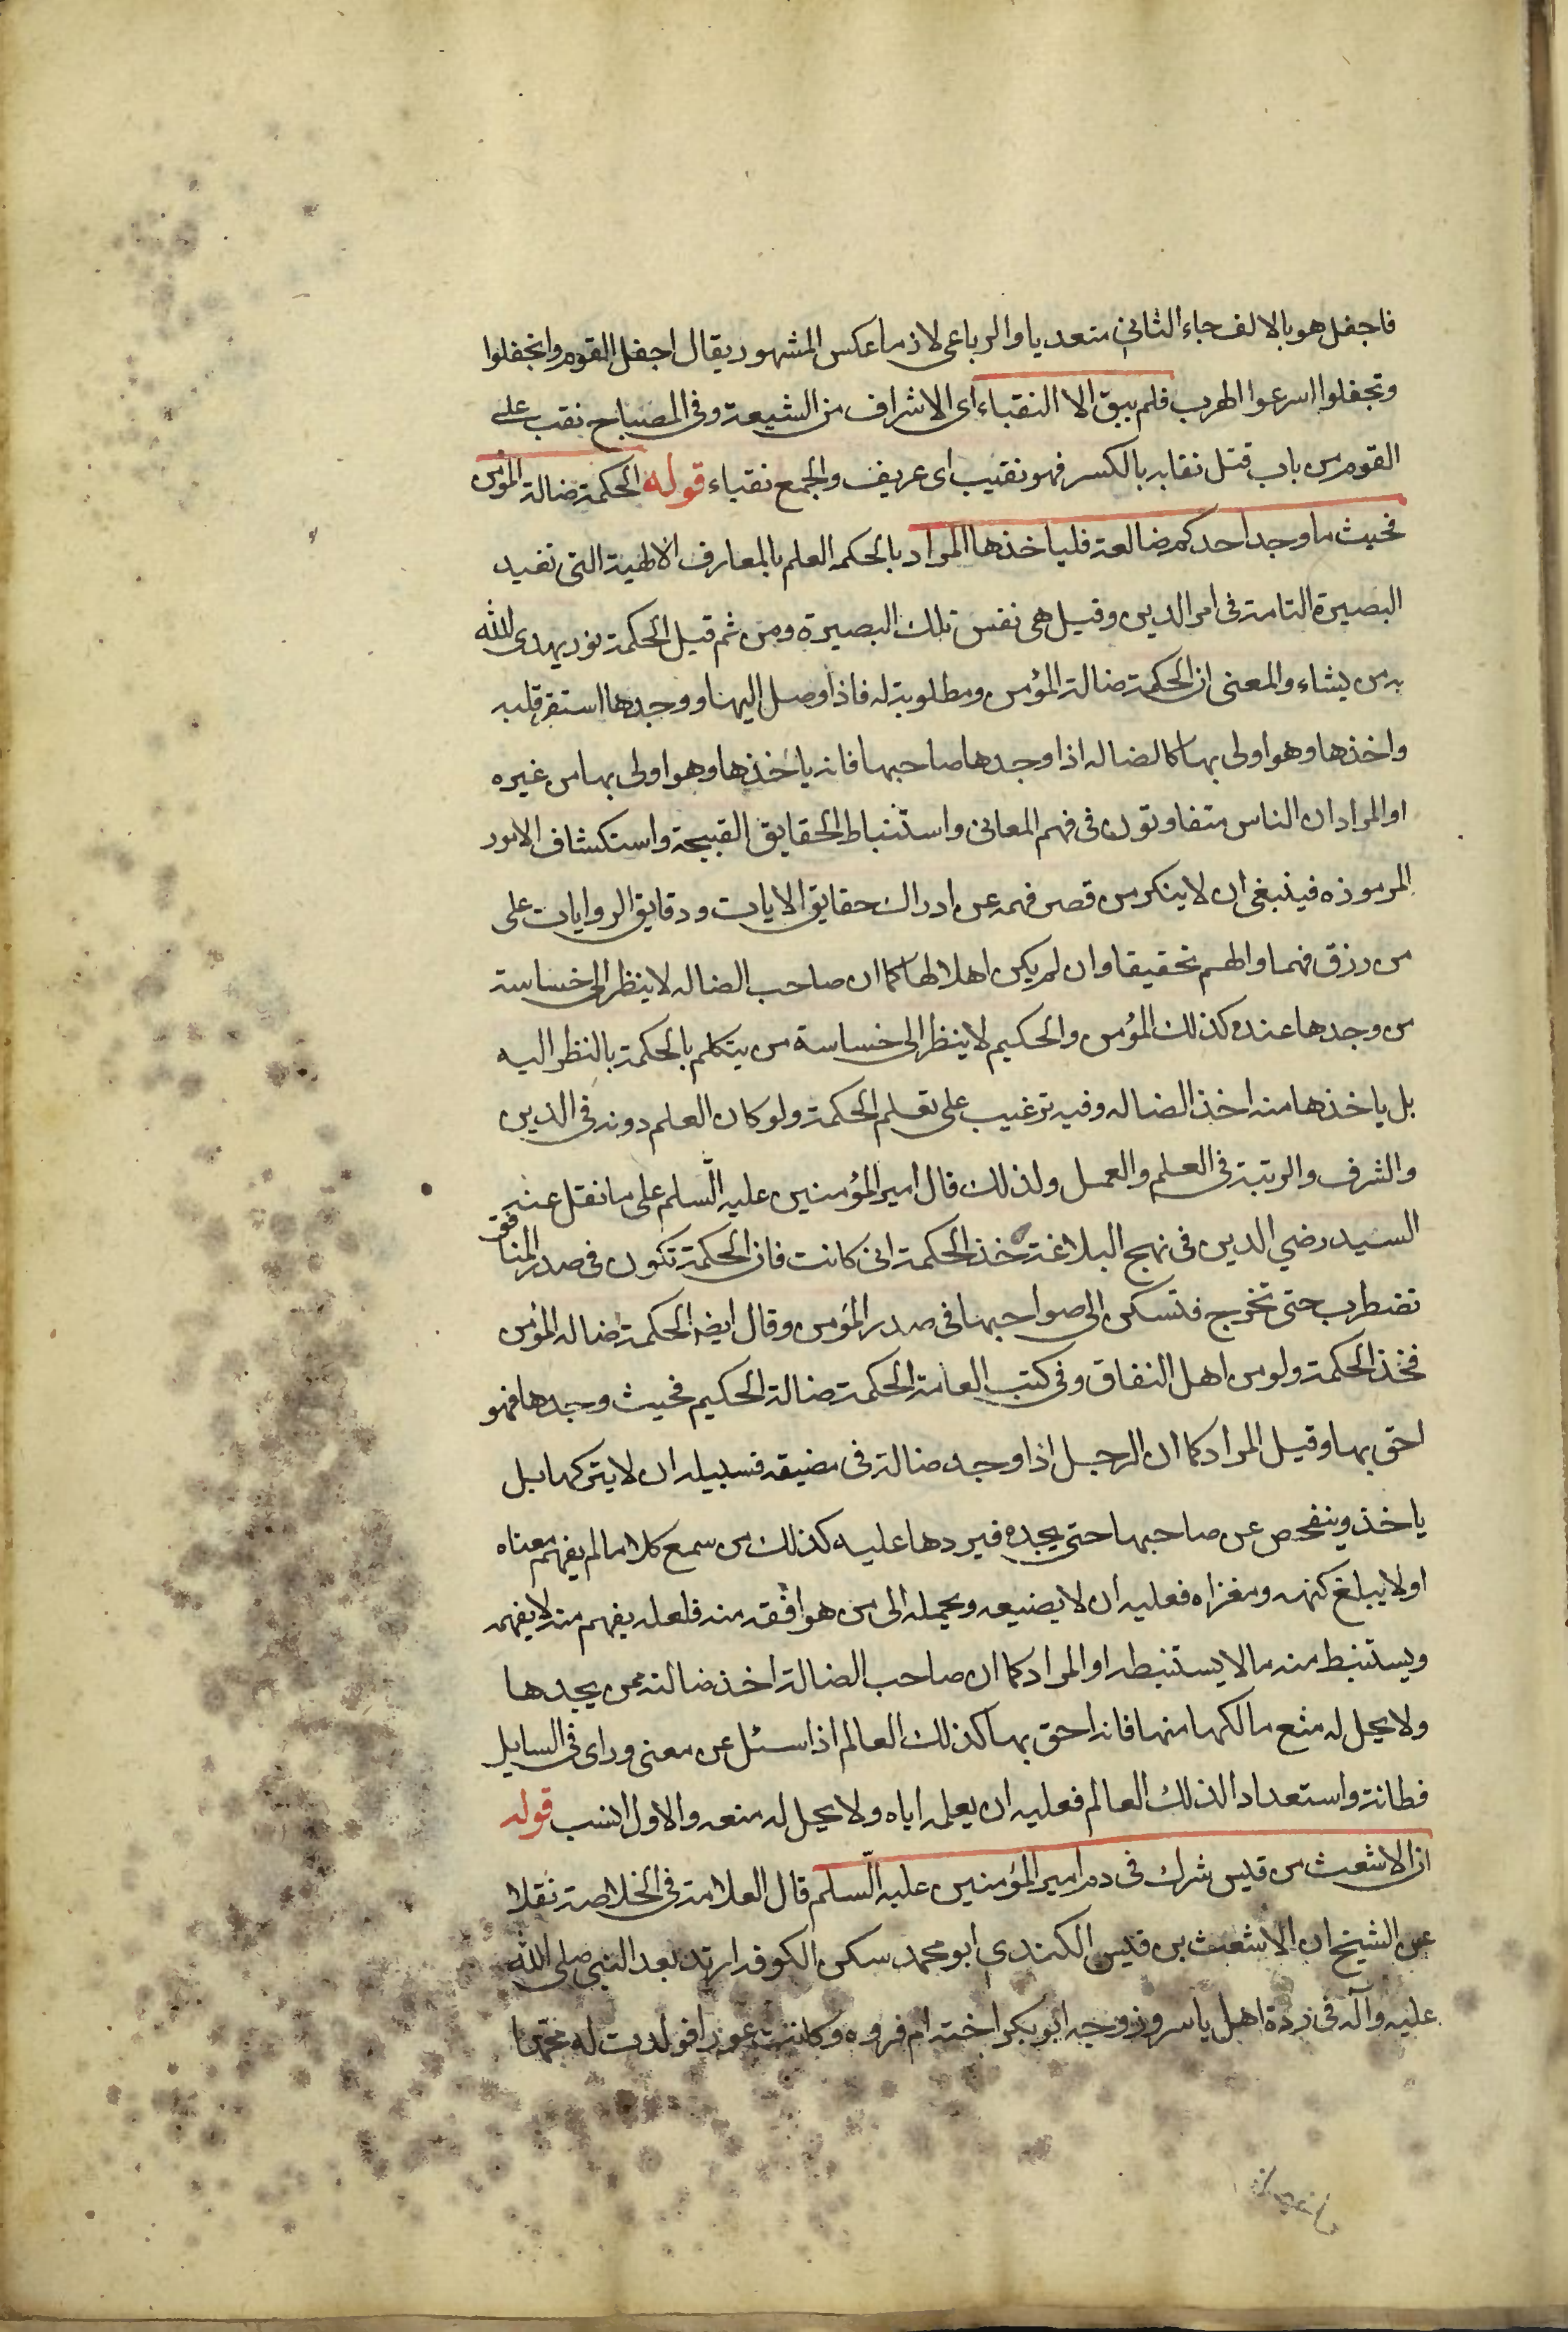 فاجفل هو بالالف جاء الثاني متعديا والرباعي لازما عكس المشهور يقال اجفل القوم وانجفلوا
وتجفلوا اسرعوا الهرب فلم يبق الا النقباء اى الاشراف من الشيعة وفى المصباح نقب على
القوم من باب قتل نقابه بالكسر فهو نقيب اى عريف والجمع نقباء قوله الحكمة ضالة المؤمن
فحيث ما وجد احدكم ضالعته فلياخذها المراد بالحكمه العلم بالمعارف الالهية التى تفيد
البصيرة التامة فى امر الدين وقيل هى نفس تلك البصيرة ومن ثم قيل الحكمة نور يهدى الله
به من يشاء والمعنى ان الحكمة ضالة المؤمن ومطلوبة له فاذا وصل اليها ووجدها استقر قلبه
واخذها وهو اولى بها كالضاله اذا وجدها صاحبها فانه ياخذها وهو اولى بها من غيره
او المراد ان الناس متفاوتون فى فهم المعانى واستنباط الحقايق القبيحة واستكشاف الامور
المرموزه فينبغى ان لا ينكر من قصر فهمه عن ادراك حقايق الايات ودقايق الروايات على
من رزق فهما والهم تحقيقا وان لم يكن اهلا لها كما ان صاحب الضاله لا ينظر الى خساسة
من وجدها عنده كذلك المؤمن والحكيم لا ينظر الى خساسة من يتكلم بالحكمة بالنظر اليه
بل ياخذها منه اخذ الضاله وفيه ترغيب على تعلم الحكمة ولو كان العلم دونه فى الدين
والشرف والرتبة فى العلم والعمل ولذلك قال امير المؤمنين عليه السلم على ما نقل عنه
السيد رضي الدين فى نهج البلاغة خذ الحكمة انى كانت فان الحكمة تكون فى صدر المنافق
تضطرب حتى تخرج فتسكن الى صواحبها فى صدر المؤمن وقال ايضا الحكمة ضاله المؤمن
فخذ الحكمة ولو من اهل النفاق وفى كتب العامة الحكمة ضالة الحكيم فحيث وجدها فهو
احق بها وقيل المراد كما ان الرجل اذا وجد ضالة فى مضيقه فسبيله ان لا يتركها بل
ياخذ ويتفحص عن صاحبها حتى يجده فيردها عليه كذلك من سمع كلاما لم يفهم معناه
او لا يبلغ كنهه ومغزاه فعليه ان لا يضيعه ويحمله الى من هو افقه منه فلعله يفهم منه لا يفهمه
ويستنبط منه ما لا يستنبطه او المراد كما ان صاحب الضالة اخذ ضالته ممن يجدها
ولا يحل له منع مالكها منها فانه احق بها كذلك العالم اذا سئل عن معنى وراى فى السايل
فطانة واستعدادا لذلك العالم فعليه ان يعلمه اياه ولا يحل له منعه والاول انسب قوله
ان الاشعث من قيس شرك فى دم امير المؤمنين عليه السلم قال العلامة فى الخلاصة نقلا
عن الشيخ ان الاشعث بن قيس الكندي ابو محمد سكن الكوفه ارتد بعد النبي صلى الله
عليه وآله فى ردة اهل ياسر وزوجه ابو بكر اخته ام فروه وكانت عورا فولدت له محمدا